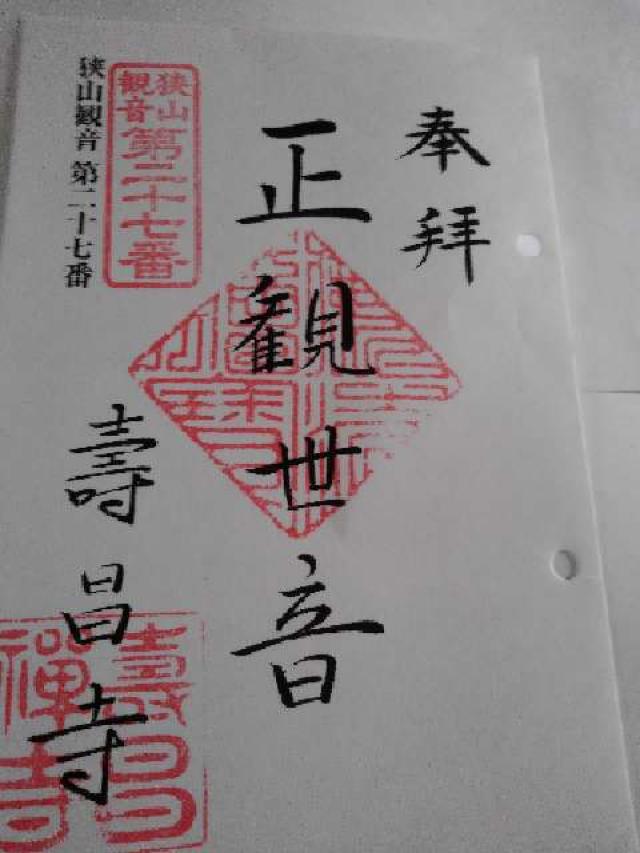 奉拝
正観世音
狭山
観音
第二十七番
狭山観音 第二十七番
壽昌寺
壽昌
禅寺